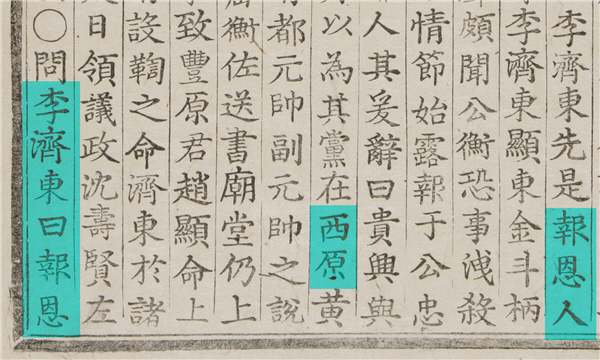 李濟東先是報恩人
李濟東顯東金斗柄
頗聞公衡恐事洩殺
情節始露報于公忠
人其爰辭曰貴興與
以為其黨在西原黃
都元帥副元帥之說
衡佐送書廟堂仍上
致豐原君趙顯命上
設鞫之命濟東於諸
日領議政沈壽賢左
○問李濟東曰報恩